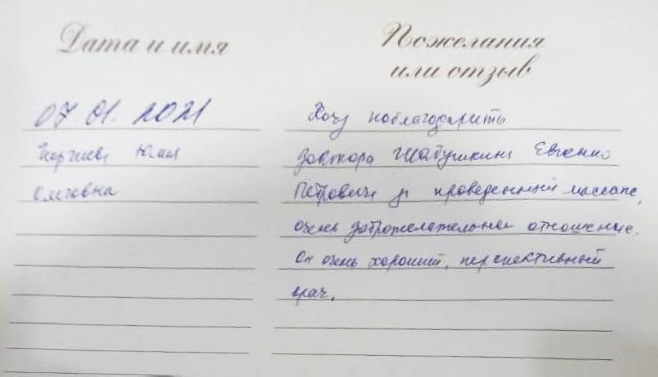 Дата и имя
Пожелания
или отзыв
07.01.2021
Хочу поблагодарить
Юлия
доктора Шабушкина Евгению
Олеговна
Петровича за проведенный массаж,
очень доброжелательное отношение.
Он очень хороший, перспективный
врач.